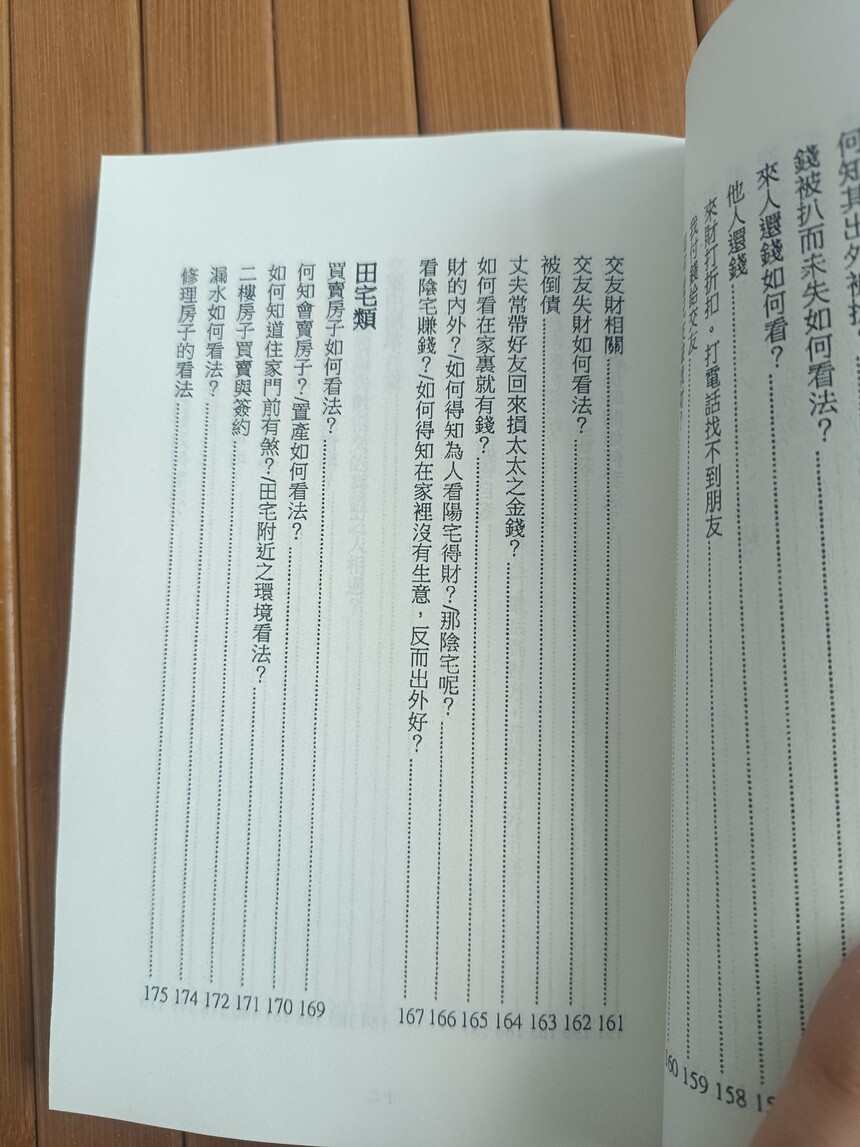 何知其出外被
錢被扒而未失如何看法？
來人還錢如何看？
他人還錢 158
來財打折扣。打電話找不到朋友 159
我付錢給交友 60
交友財相關 161
交友失財如何看法？ 162
被倒債 163
丈夫常帶好友回來損太太之金錢？ 164
如何看在家裏就有錢？ 165
財的內外？/如何得知為人看陽宅得財？/那陰宅呢？ 166
看陰宅賺錢？/如何得知在家裡沒有生意，反而出外好？ 167
田宅類
買賣房子如何看法？ 169
何知會賣房子？/置產如何看法？ 170
如何知道住家門前有煞？/田宅附近之環境看法？ 171
二樓房子買賣與簽約 172
漏水如何看法？ 174
修理房子的看法 175